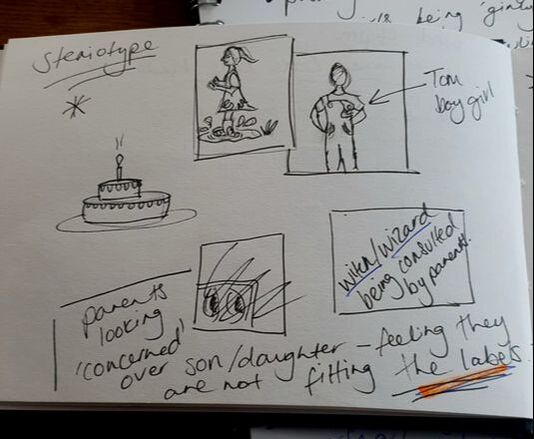 steriotype
Tom
boy girl
witch/wizard
being consulted
by parents.
parents
looking
'concerned'
over son/daughter - feeling they
are not fitting the labels.
being 'girly